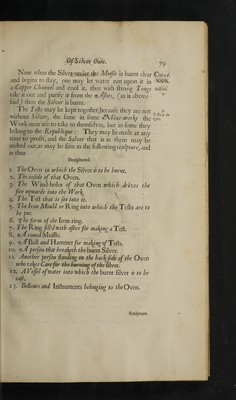 Of Silver Oars. 79
Now when the Silver under the Muffle is burnt clear
and begins to stay, one may let water run upon it in
a Copper Channel and cool it, then with strong Tongs
take it out and purify it from the Ashes, (as is above
said,) thus the Salver is burnt.
The Tests may be kept together, because they are not
without Silver, the same in some Mine-works the
Work-men use to take to themselves, but in some they
belong to the Republique: They may be made at any
time to profit, and the Salver that is in them may be
melted out, as may be seen in the following sculpture, and
is thus
Deciphered.
1. The Oven in which the Silver is to be burnt.
2. The inside of that Oven.
3. The Wind-holes of that Oven which drives the
fire upwards into the Work.
4. The Test that is set into it.
5. The Iron Mould or Ring into which the Tests are to
be put.
6. The form of the Iron ring.
7. The Ring fill'd with ashes for making a Test.
8. A round Muffle.
9. A Ball and Hammer for making of Tests.
10. A person that breaketh the burnt Silver.
11. Another person standing on the back-side of the Oven
who takes Care for the burning of the Silver.
12. A Vessel of water into which the burnt silver is to be
cast.
13. Bellows and Instruments belonging to the Ovens.
Sculpture